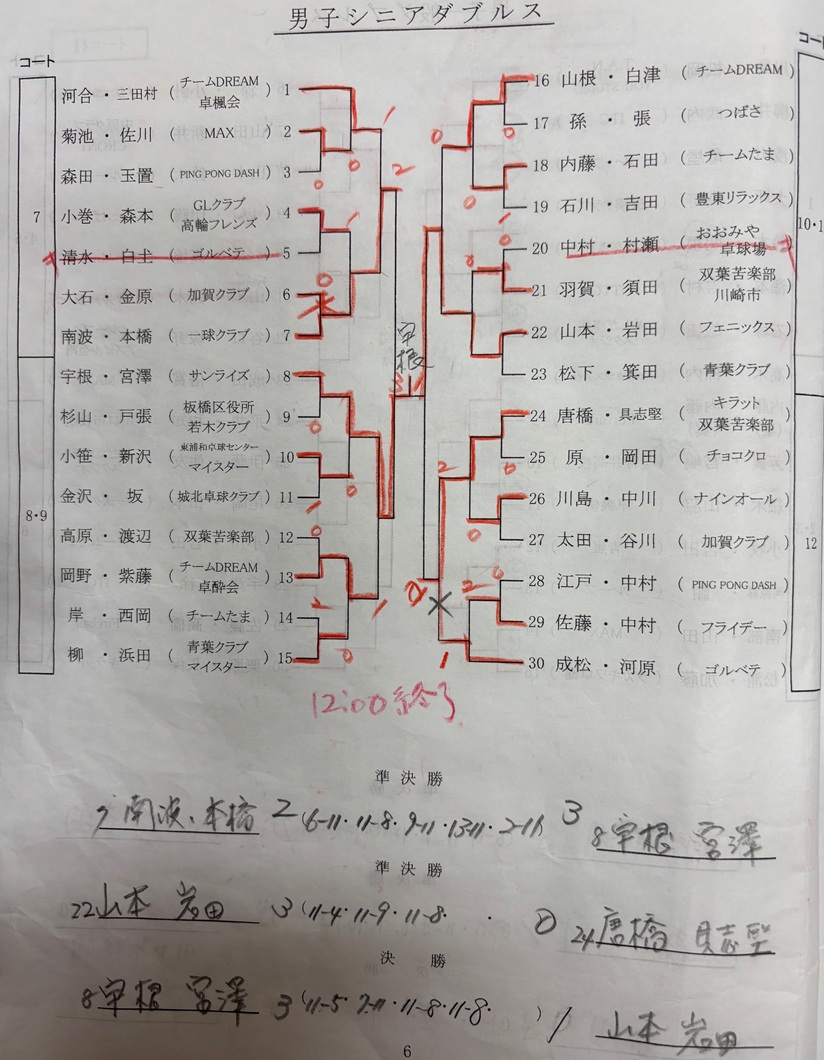 男子シニアダブルス
コート
7
8・9
河合・三田村 ( チームDREAM 卓楓会 ) 1
菊池・佐川 ( MAX ) 2
森田・玉置 ( PING PONG DASH ) 3
小巻・森本 ( GLクラブ 高輪フレンズ ) 4
清水・白圡 ( ゴルベテ ) 5
大石・金原 ( 加賀クラブ ) 6
南波・本橋 ( 一球クラブ ) 7
宇根・宮澤 ( サンライズ ) 8
杉山・戸張 ( 板橋区役所 若木クラブ ) 9
小笹・新沢 ( 東浦和卓球センター マイスター ) 10
金沢・坂 ( 城北卓球クラブ ) 11
高原・渡辺 ( 双葉苦楽部 ) 12
岡野・紫藤 ( チームDREAM 卓酔会 ) 13
岸・西岡 ( チームたま ) 14
柳・浜田 ( 青葉クラブ マイスター ) 15
宇根
コート
10・1
12
16 山根・白津 ( チームDREAM )
17 孫・張 ( つばさ )
18 内藤・石田 ( チームたま )
19 石川・吉田 ( 豊東リラックス )
20 中村・村瀬 ( おおみや 卓球場 )
21 羽賀・須田 ( 双葉苦楽部 川崎市 )
22 山本・岩田 ( フェニックス )
23 松下・箕田 ( 青葉クラブ )
24 唐橋・具志堅 ( キラット 双葉苦楽部 )
25 原・岡田 ( チョコクロ )
26 川島・中川 ( ナインオール )
27 太田・谷川 ( 加賀クラブ )
28 江戸・中村 ( PING PONG DASH )
29 佐藤・中村 ( フライデー )
30 成松・河原 ( ゴルベテ )
12:00 終了
準決勝
7 南波、本橋 2 (6-11・11-8・9-11・13-11・2-11) 3 8 宇根 宮澤
準決勝
22 山本 岩田 3 (11-4・11-9・11-8・ ・ ) 0 24 唐橋 具志堅
決勝
8 宇根 宮澤 3 (11-5 7-11・11-8・11-8・ ) 1 山本 岩田
6